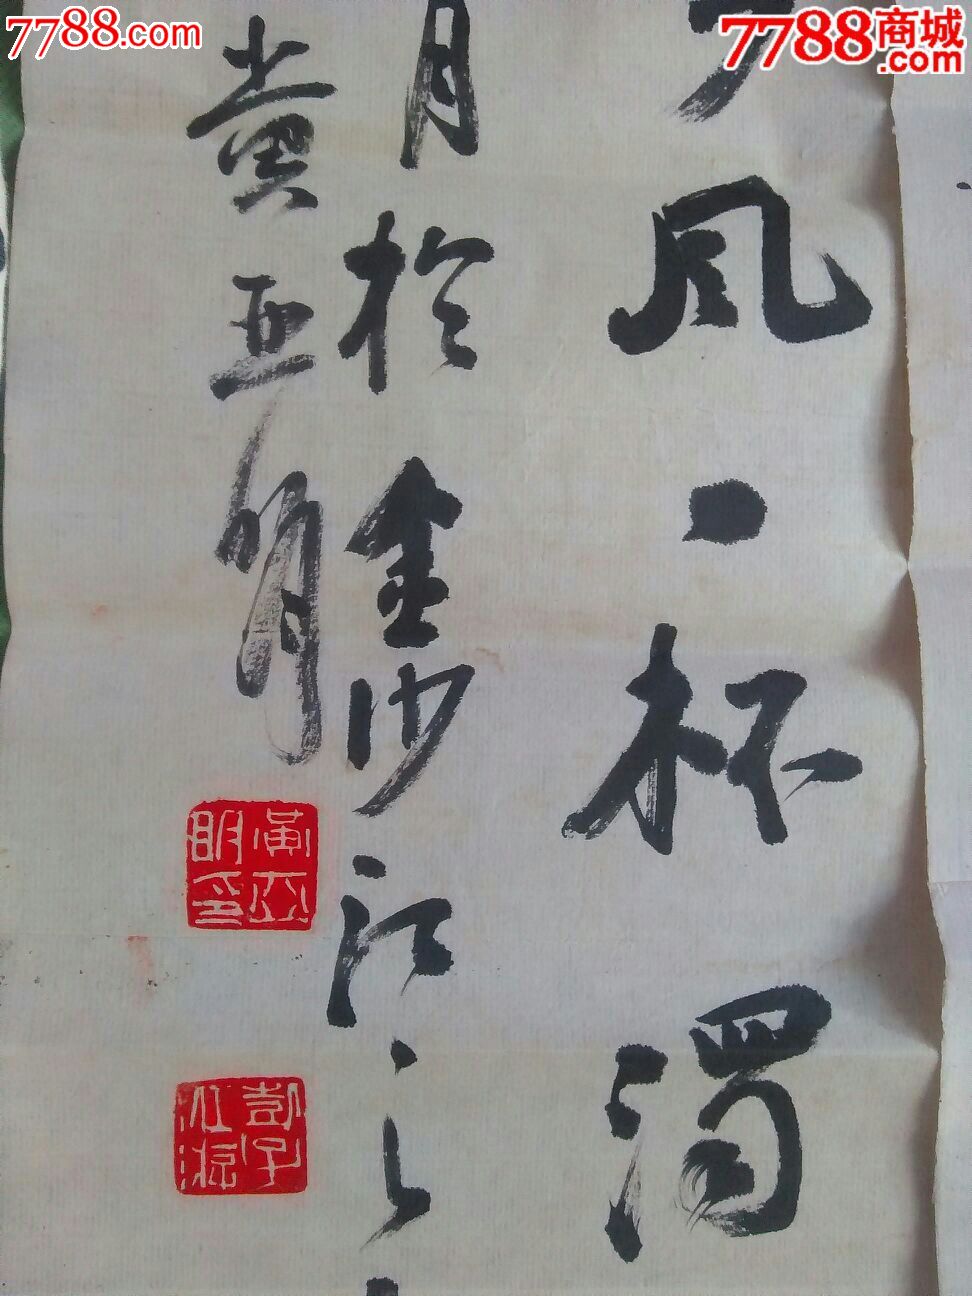 7788.com
7788商城
.com
风一杯濁
月於金沙江之
黄亚明
黄亚
明印